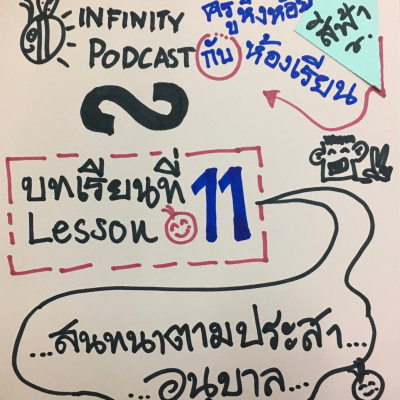 INFINITY
PODCAST
ครูหิ่งห้อย
กับ ห้องเรียน
สีฟ้า
บทเรียนที่
Lesson 11
...สนทนาตามประสา...
...อนุบาล...